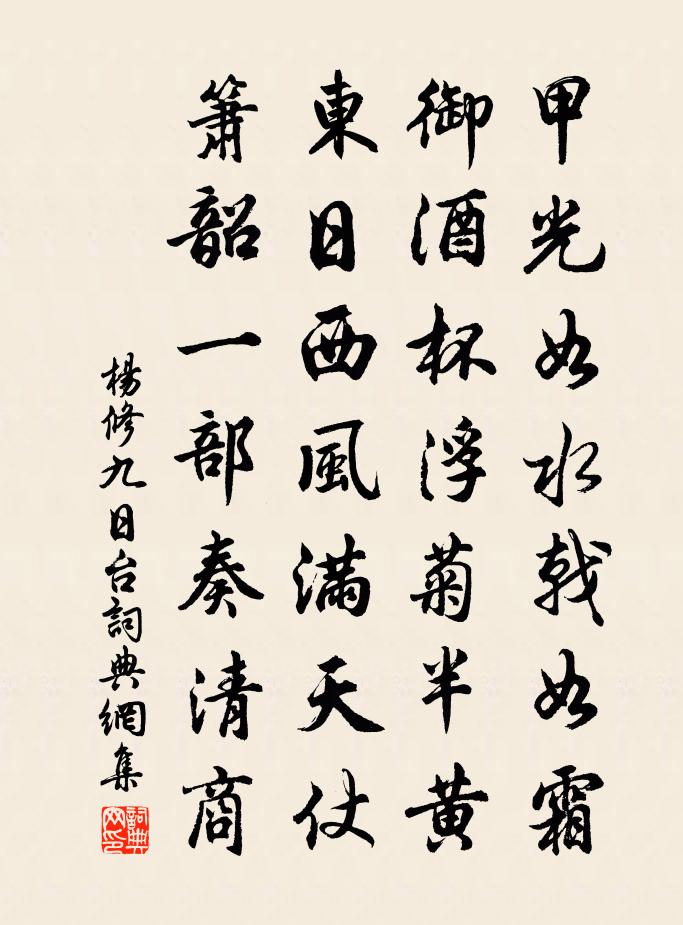 甲光如水戟如霜
御酒杯浮菊半黄
東日西風滿天仗
簫韶一部奏清商
楊修九日台詞典網集
詞典网印